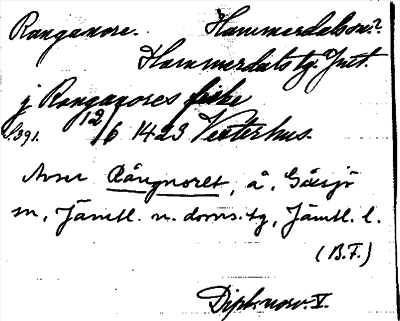 Ranganore. Hammerdals sn.?
Hammerdals tg. Jmt.
j Ranganores fiske
s. 391. 12/6 1423 Vesterhus.
Avser Rångnoret, å, Gåxsjö
sn, Jämtl. n. doms. tg, Jämtl. l.
(B.F.)
Dipl. norv. V.